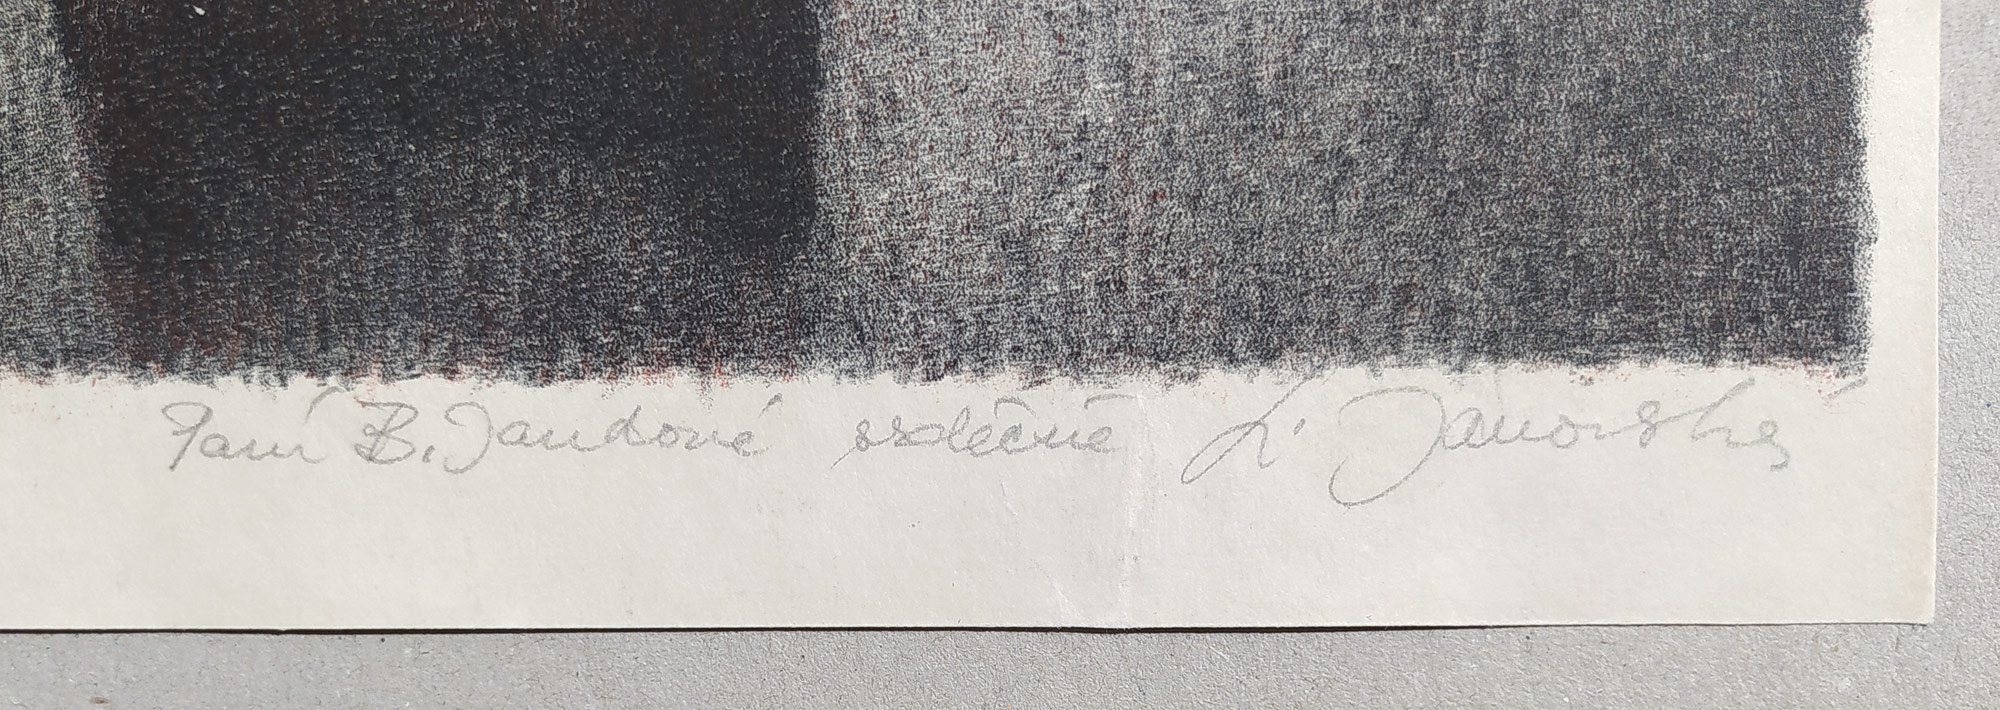 Paní B. Jandové srdečně L. Janovská